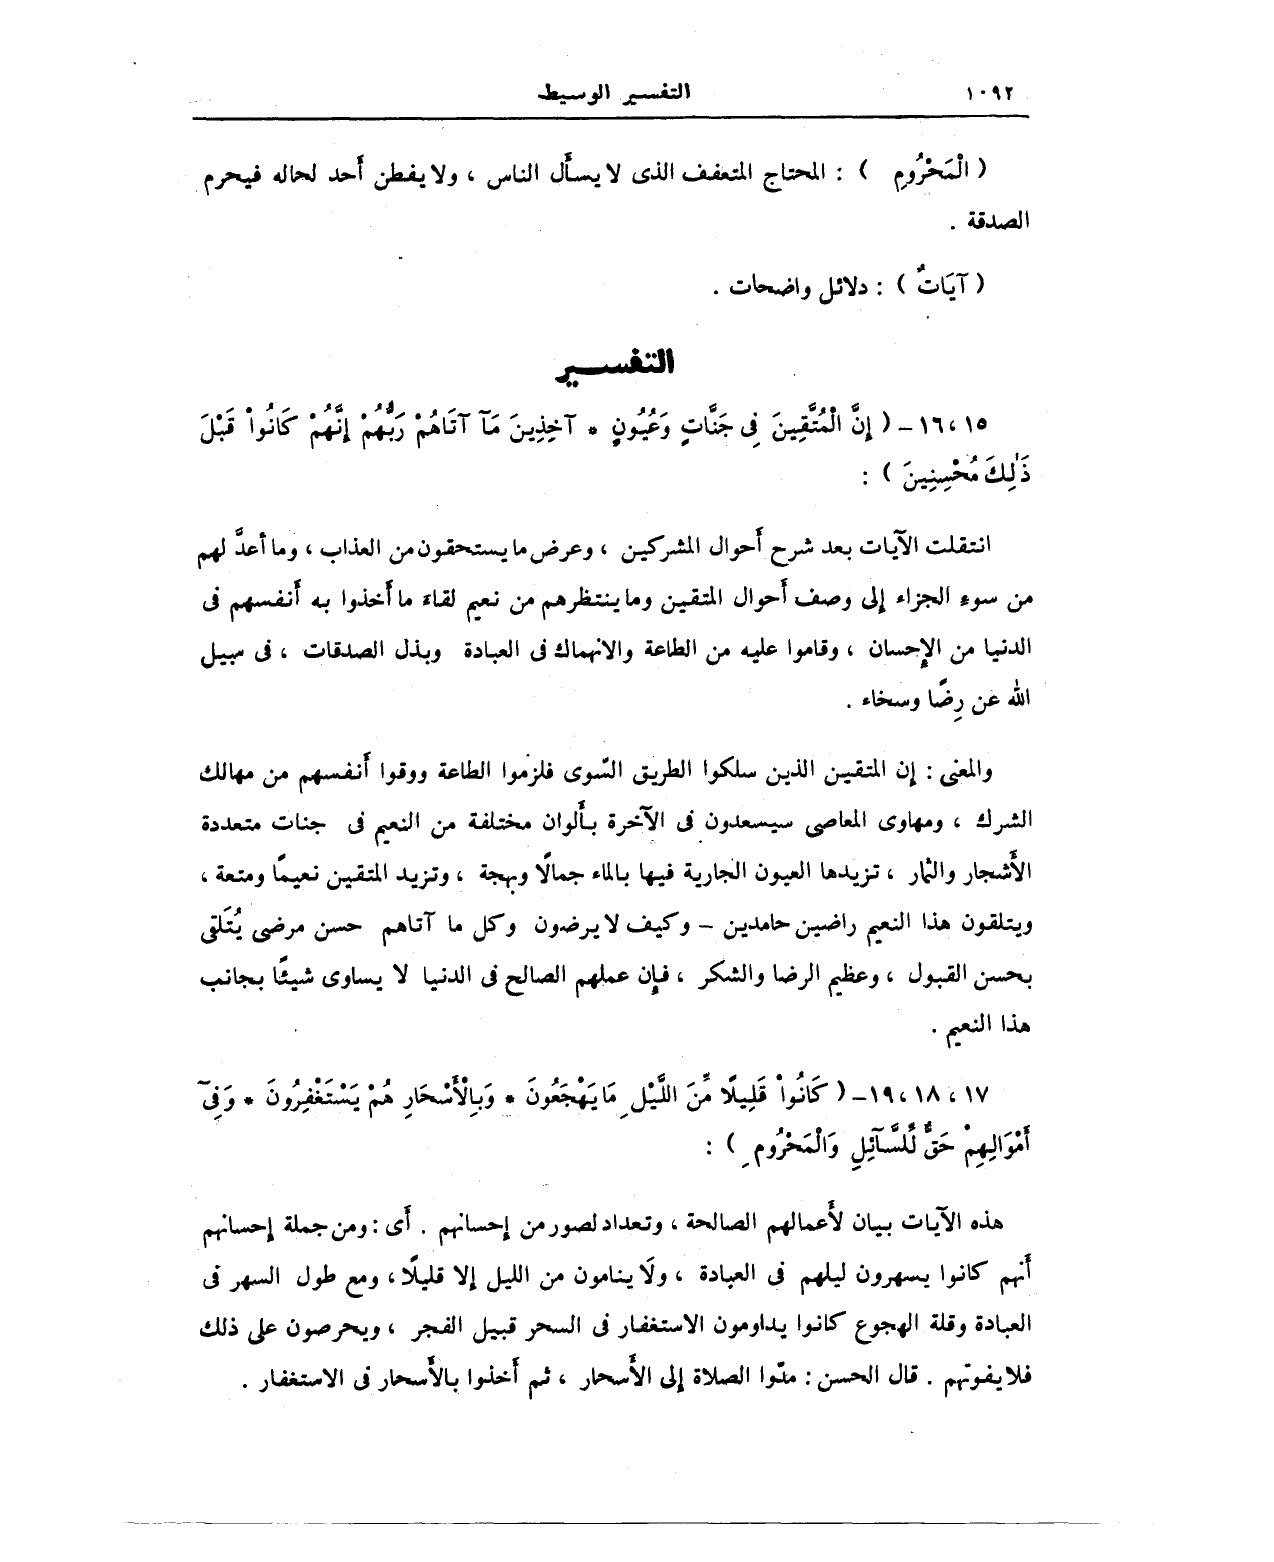 ١٠٩٢ التفسير الوسيط
( الْمَحْرُومِ ) : المحتاج المتعفف الذى لا يسأل الناس ، ولا يفطن أحد لحاله فيحرم
الصدقة .
( آيَاتٌ ) : دلائل واضحات .
التفسير
١٦،١٥ – ( إِنَّ الْمُتَّقِينَ فِى جَنَّاتٍ وَعُيُونٍ * آخِذِينَ مَآ آتَاهُمْ رَبُّهُمْ إِنَّهُمْ كَانُواْ قَبْلَ
ذَٰلِكَ مُحْسِنِينَ ) :
انتقلت الآيات بعد شرح أحوال المشركين ، وعرض ما يستحقون من العذاب ، وما أعدَّ لهم
من سوءِ الجزاء إلى وصف أحوال المتقين وما ينتظرهم من نعيم لقاءَ ما أخذوا به أنفسهم فى
الدنيا من الإحسان ، وقاموا عليه من الطاعة والانهماك فى العبادة وبذل الصدقات ، فى سبيل
الله عن رِضًا وسخاء .
والمعنى : إن المتقين الذين سلكوا الطريق السَّوى فلزموا الطاعة ووقوا أنفسهم من مهالك
الشرك ، ومهاوى المعاصى سيسعدون فى الآخرة بألوان مختلفة من النعيم فى جنات متعددة
الأشجار والثمار ، تزيدها العيون الجارية فيها بالماء جمالًا وبهجة ، وتزيد المتقين نعيمًا ومتعة ،
ويتلقون هذا النعيم راضين حامدين – وكيف لا يرضون وكل ما آتاهم حسن مرضى يُتَلقى
بحسن القبول ، وعظيم الرضا والشكر ، فإن عملهم الصالح فى الدنيا لا يساوى شيئًا بجانب
هذا النعيم .
١٧ ، ١٨ ،١٩ – ( كَانُواْ قَلِيلًا مِّنَ اللَّيْلِ مَا يَهْجَعُونَ * وَبِالْأَسْحَارِ هُمْ يَسْتَغْفِرُونَ * وَفِىٓ
أَمْوَالِهِمْ حَقٌّ لِّلسَّآئِلِ وَالْمَحْرُومِ ) :
هذه الآيات بيان لأعمالهم الصالحة ، وتعداد لصور من إحسانهم . أى : ومن جملة إحسانهم
أنهم كانوا يسهرون ليلهم فى العبادة ، ولَا ينامون من الليل إلا قليلًا ، ومع طول السهر فى
العبادة وقلة الهجوع كانوا يداومون الاستغفار فى السحر قبيل الفجر ، ويحرصون على ذلك
فلا يفوتهم . قال الحسن : مدّوا الصلاة إلى الأسحار ، ثم أخذوا بالأسحار فى الاستغفار .